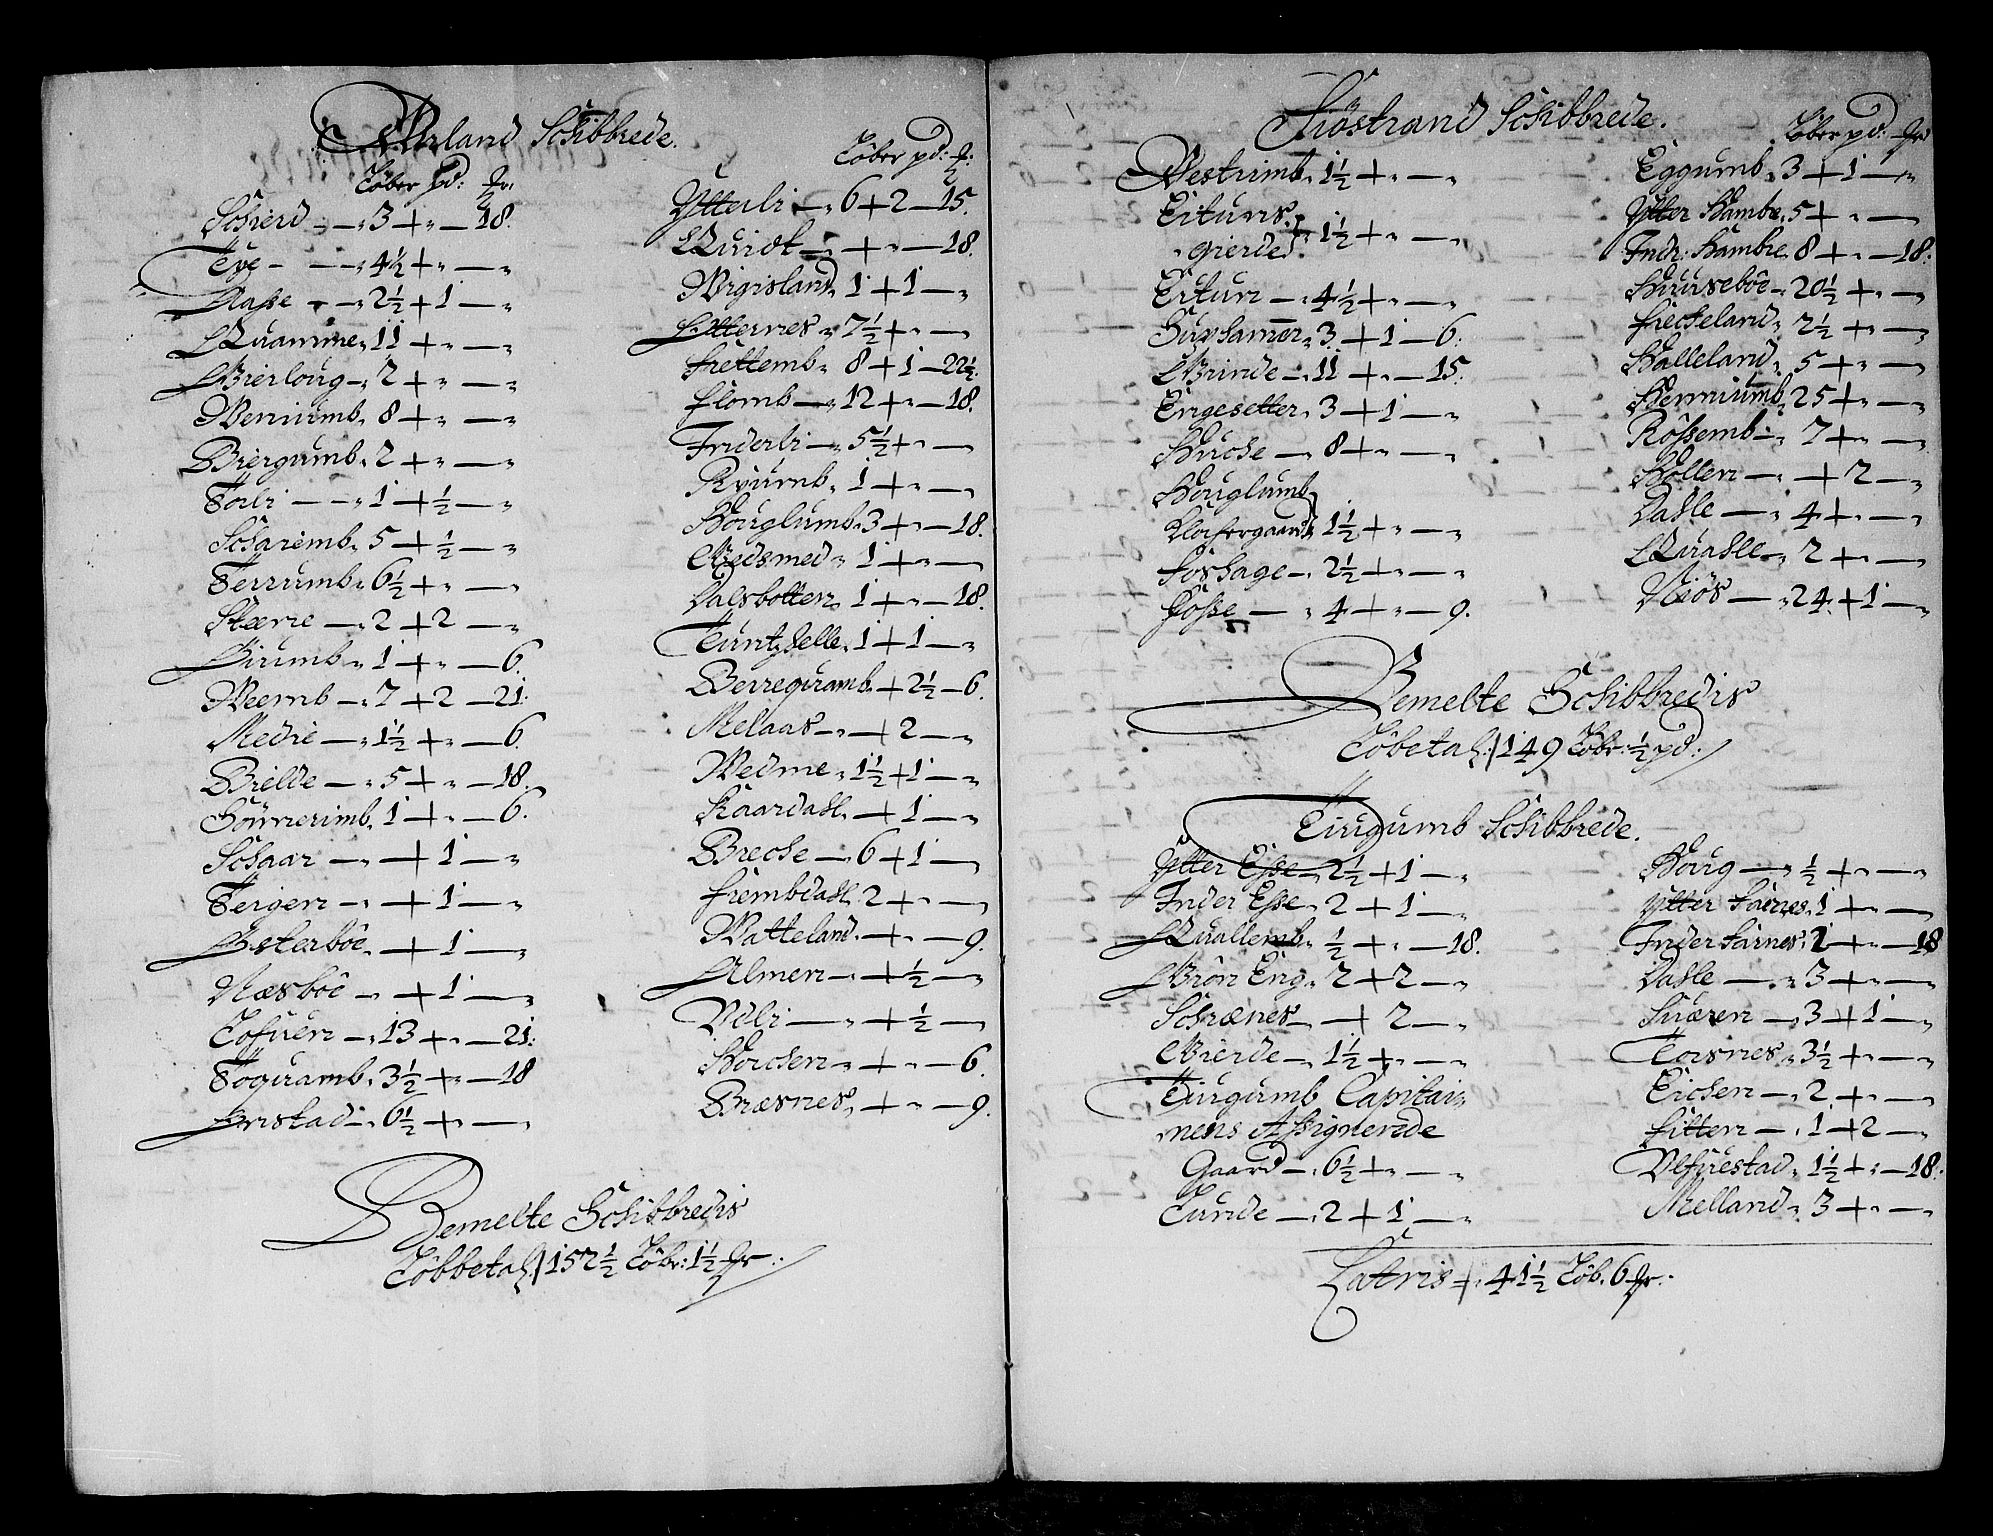 Aürland Schibbrede.
Löber pd: fr.
Schierd — „ 3 + „ — 18.
Tÿe — — „ 4½ + „ — „
Aaße — „ 2½ + 1 — „
Quamme „ 11 + „ — „
Gierloug — „ 2 + „ — „
Weniumb „ 8 + „ — „
Biergumb „ 2 + „ — „
Toli — — „ 1 + ½ — „
Scharimb „ 5 + ½ — „
Terrumb „ 6½ + „ — „
Stærre — „ 2 + 2 — „
Girumb „ 1 + „ — 6.
Weemb — „ 7 + 2 — 21.
Medie — „ 1½ + „ — 6.
Bielde — „ 5 + „ — 18.
Sönnerimb „ 1 + „ — 6.
Schaar — „ + 1 — „
Teigen — „ + 1 — „
Østerböe „ + 1 — „
Næsböe — „ + 1 — „
Lofuen — „ 13 + „ — 21.
Toguamb „ 3½ + „ — 18
Onstad — „ 6½ + „ — „
Löber pd: fr:
Ÿtterli — „ 6 + 2 — 15.
Quidt — „ + „ — 18.
Wigisland „ 1 + 1 — „
Otternes „ 7½ + „ — „
Frettemb „ 8 + 1 — 22½.
Flomb — „ 12 + „ — 18.
Inderli — „ 5½ + „ — „
Ryumb „ 1 + „ — „
Houglumb „ 3 + „ — 18.
Gudsmed „ 1 + „ — „
Dalsbotten „ 1 + „ — 18.
Tuntzelle „ 1 + 1 — „
Berreqvamb „ + 2½ — 6.
Melaas — „ + 2 — „
Wedme „ 1½ + 1 — „
Kaardahl „ + 1 — „
Breche — „ 6 + 1 — „
Frembdahl 2 + „ — „
Watteland „ + „ — 9.
Almen — „ + ½ — „
Vdli — — „ + ½ — „
Horchen — „ + „ — 6.
Bræsnes „ + „ — 9.
Bemelte Schibbredis
Löbbetal / 157½ Löbr: 1½ fr:
Siöstrand Schibbrede.
Westrimb „ 1½ + „ — „
Eituns
gierde „ 1½ + „ — „
Eitun — „ 4½ + „ — „
Suphamer „ 3 + 1 — 6.
Grinde — „ 11 + „ — 15.
Engesetter „ 3 + 1 — „
Huche — „ 8 + „ — „
Houglumb
Klochergaard „ 1½ + „ — „
Foshage — „ 2½ + „ — „
Foße — „ 4 + „ — 9.
Löber pd: fr
Eggumb „ 3 + 1 — „
Ÿtter Hambre „ 5 + „ — „
Indr: Hambre „ 8 + „ — 18.
Huuseböe „ 20½ + „ — „
Fecheland „ 2½ + „ — „
Halleland „ 5 + „ — „
Henniumb „ 25 + „ — „
Rößemb — „ 7 + „ — „
Hollen — „ + 2 — „
Dahle — „ 4 + „ — „
Quahle — „ 2 + „ — „
Niös — „ 24 + 1 — „
Bemelte Schibbredis
Löbetal: / 149 Löbr: ½ pd:
Eirugumb Schibbrede.
Ÿtter Eße „ 2½ + 1 — „
Inder Eße „ 2 + 1 — „
Quallemb „ ½ + „ — 18.
Grön Eng „ 2 + 2 — „
Schrænes — „ + 2 — „
Gierde — „ 1½ + „ — „
Tiugumb Capitai„
nens Aßignerede
Gaard — „ 6½ + „ — „
Tunde — „ 2 + 1 — „
Houg — „ ½ + „ — „
Ÿtter Farnes „ 1 + „ — „
Inder Farnes „ 1 + „ — 18
Dahle — „ 3 + „ — „
Suæren — „ 3 + 1 — „
Torsnes „ 3½ + „ — „
Eichen — „ 2 + „ — „
Fitten — „ 1 + 2 — „
Vlfuestad „ 1½ + „ — 18.
Melland „ 3 + „ — „
Latris + „ 41½ Löb. 6 fr: